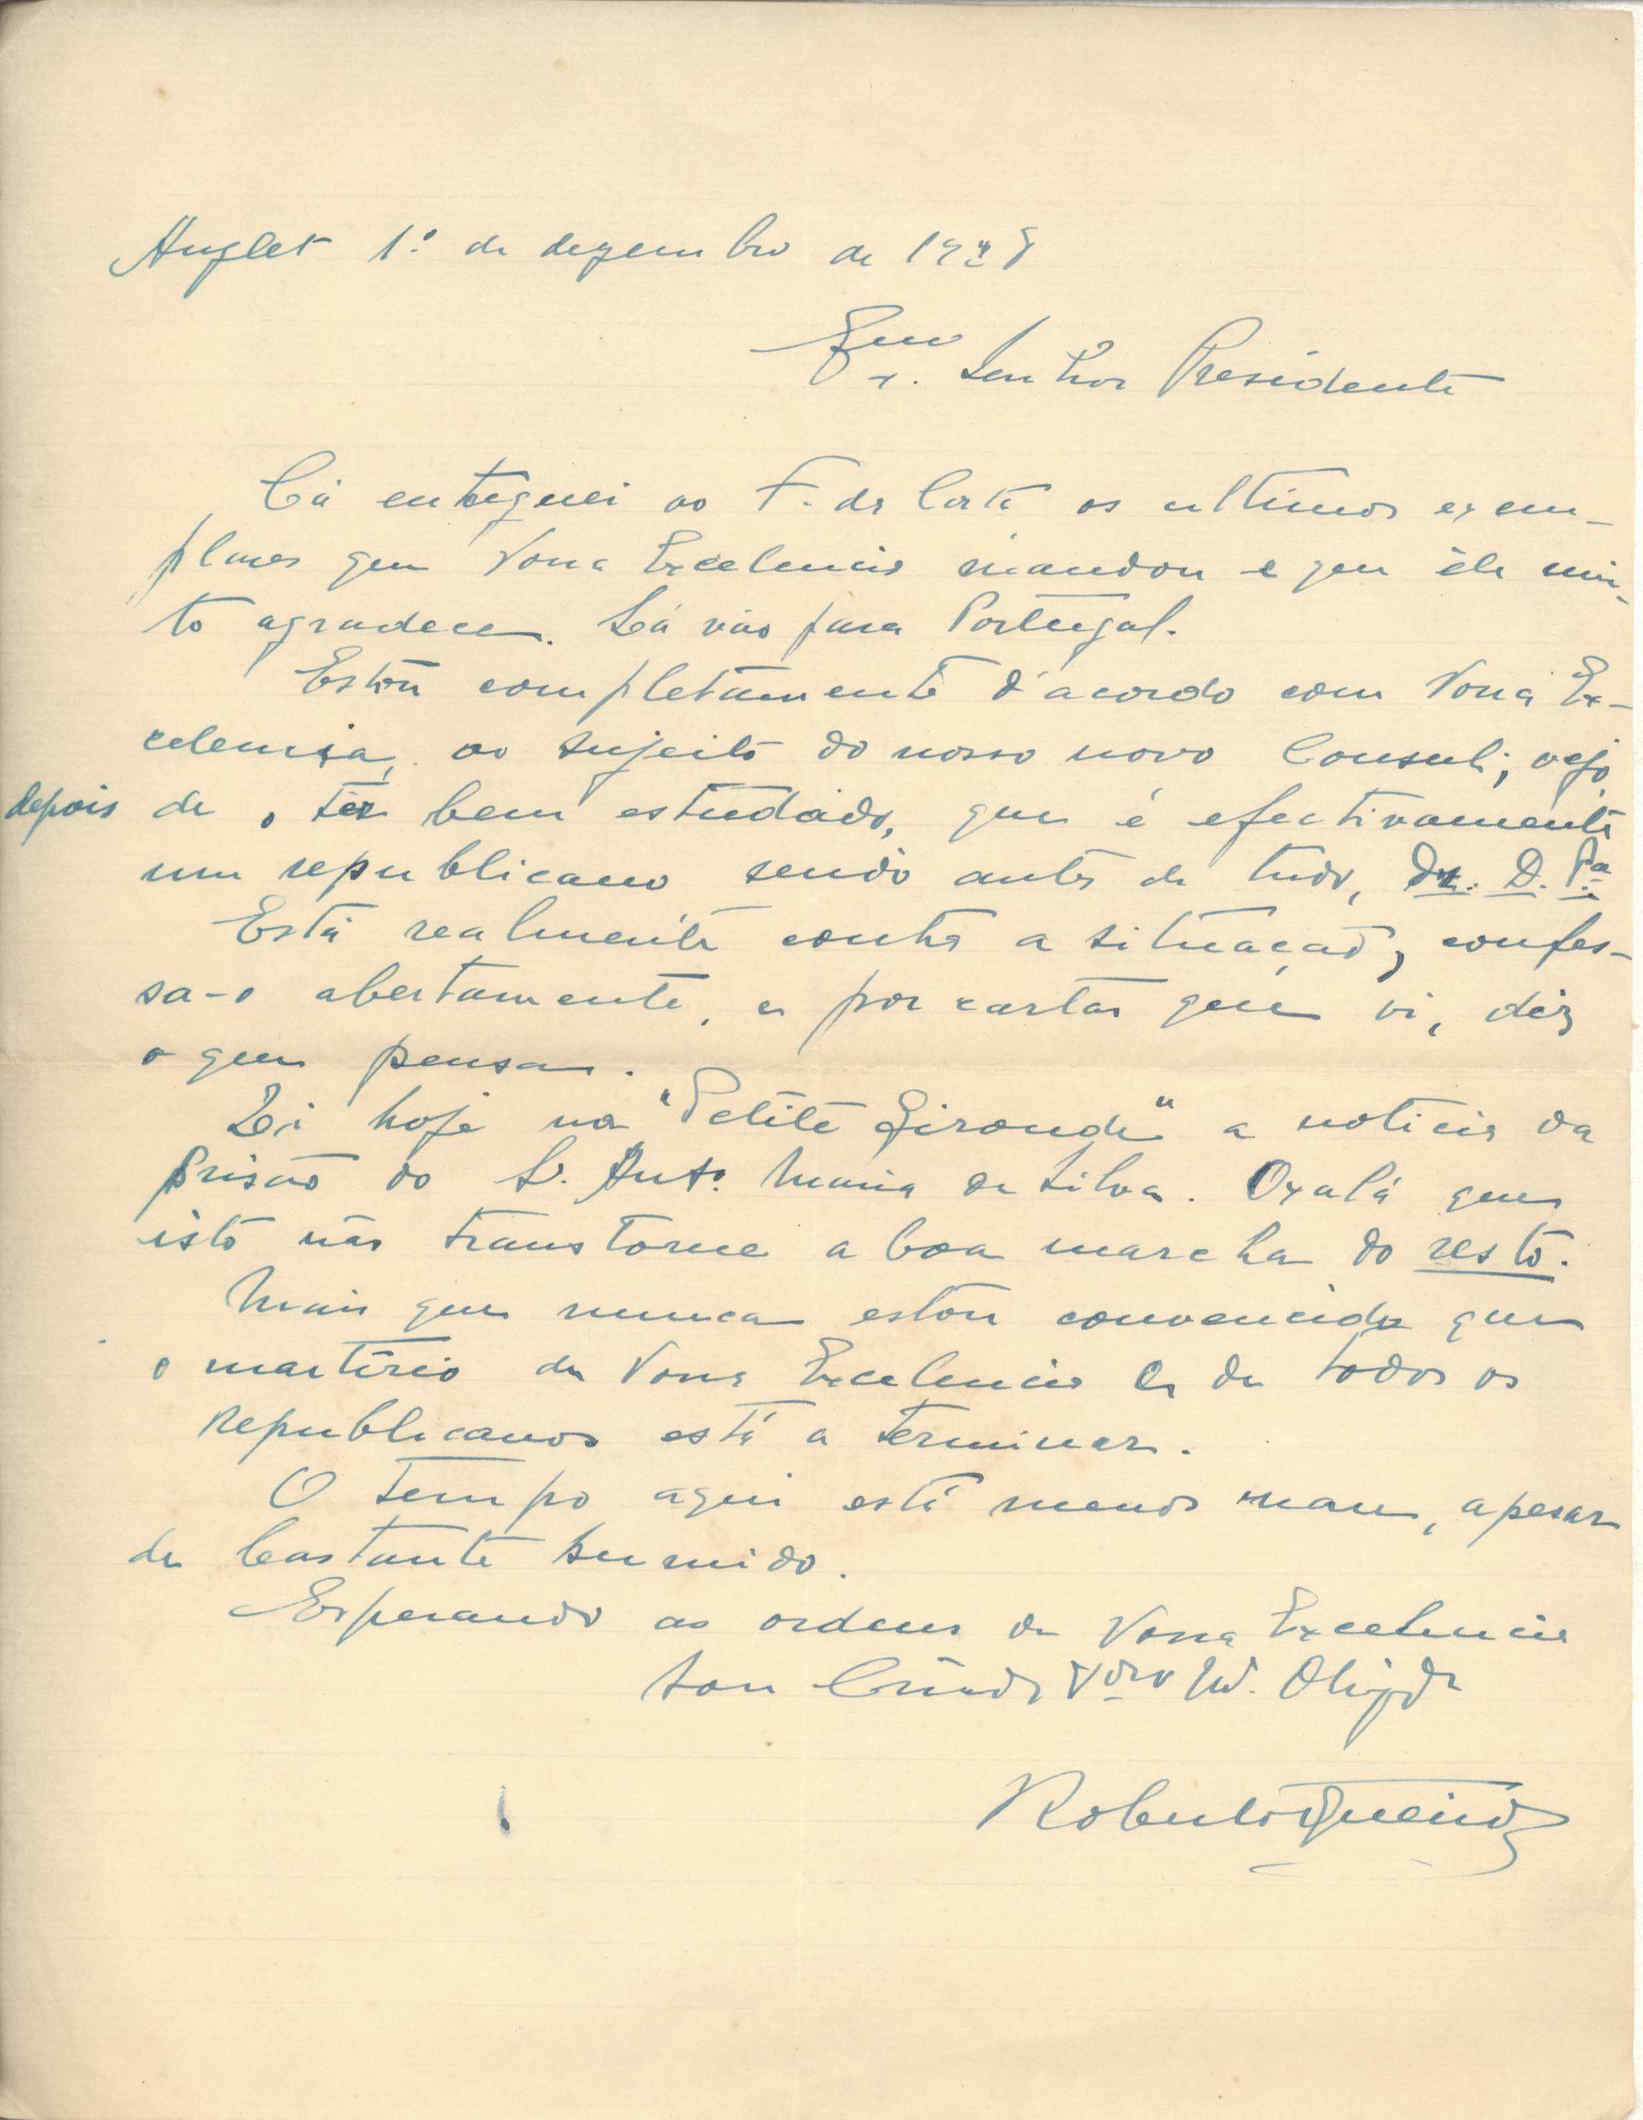 Anglet 1.º de dezembro de 1928
Exmo. Senhor Presidente
Cá entreguei ao F. da Costa os ultimos exem-
plares que Vossa Excelencia mandou e que êle mui-
to agradece. Lá vão para Portugal.
Estou completamente d'acordo com Vossa Ex-
celencia, ao sujeito do nosso novo Consul; vejo,
depois de o ter bem estudado, que é efectivamente
um republicano sendo antes de tudo, D. P.ª
Está realmente contra a situação, confes-
sa-o abertamente, e por cartas que vi, diz
o que pensa.
Li hoje na "Petite Gironde" a noticia da
prisão do S. Antº. Maria da Silva. Oxalá que
isto não transtorne a boa marcha do resto.
Mais que nunca estou convencido que
o martirio de Vossa Excelencia e de todos os
republicanos está a terminar.
O tempo aqui está menos mau, apesar
de bastante humido.
Esperando as ordens de Vossa Excelencia
sou Criado Vdro Mº. Obigdo
Roberto Queiroz